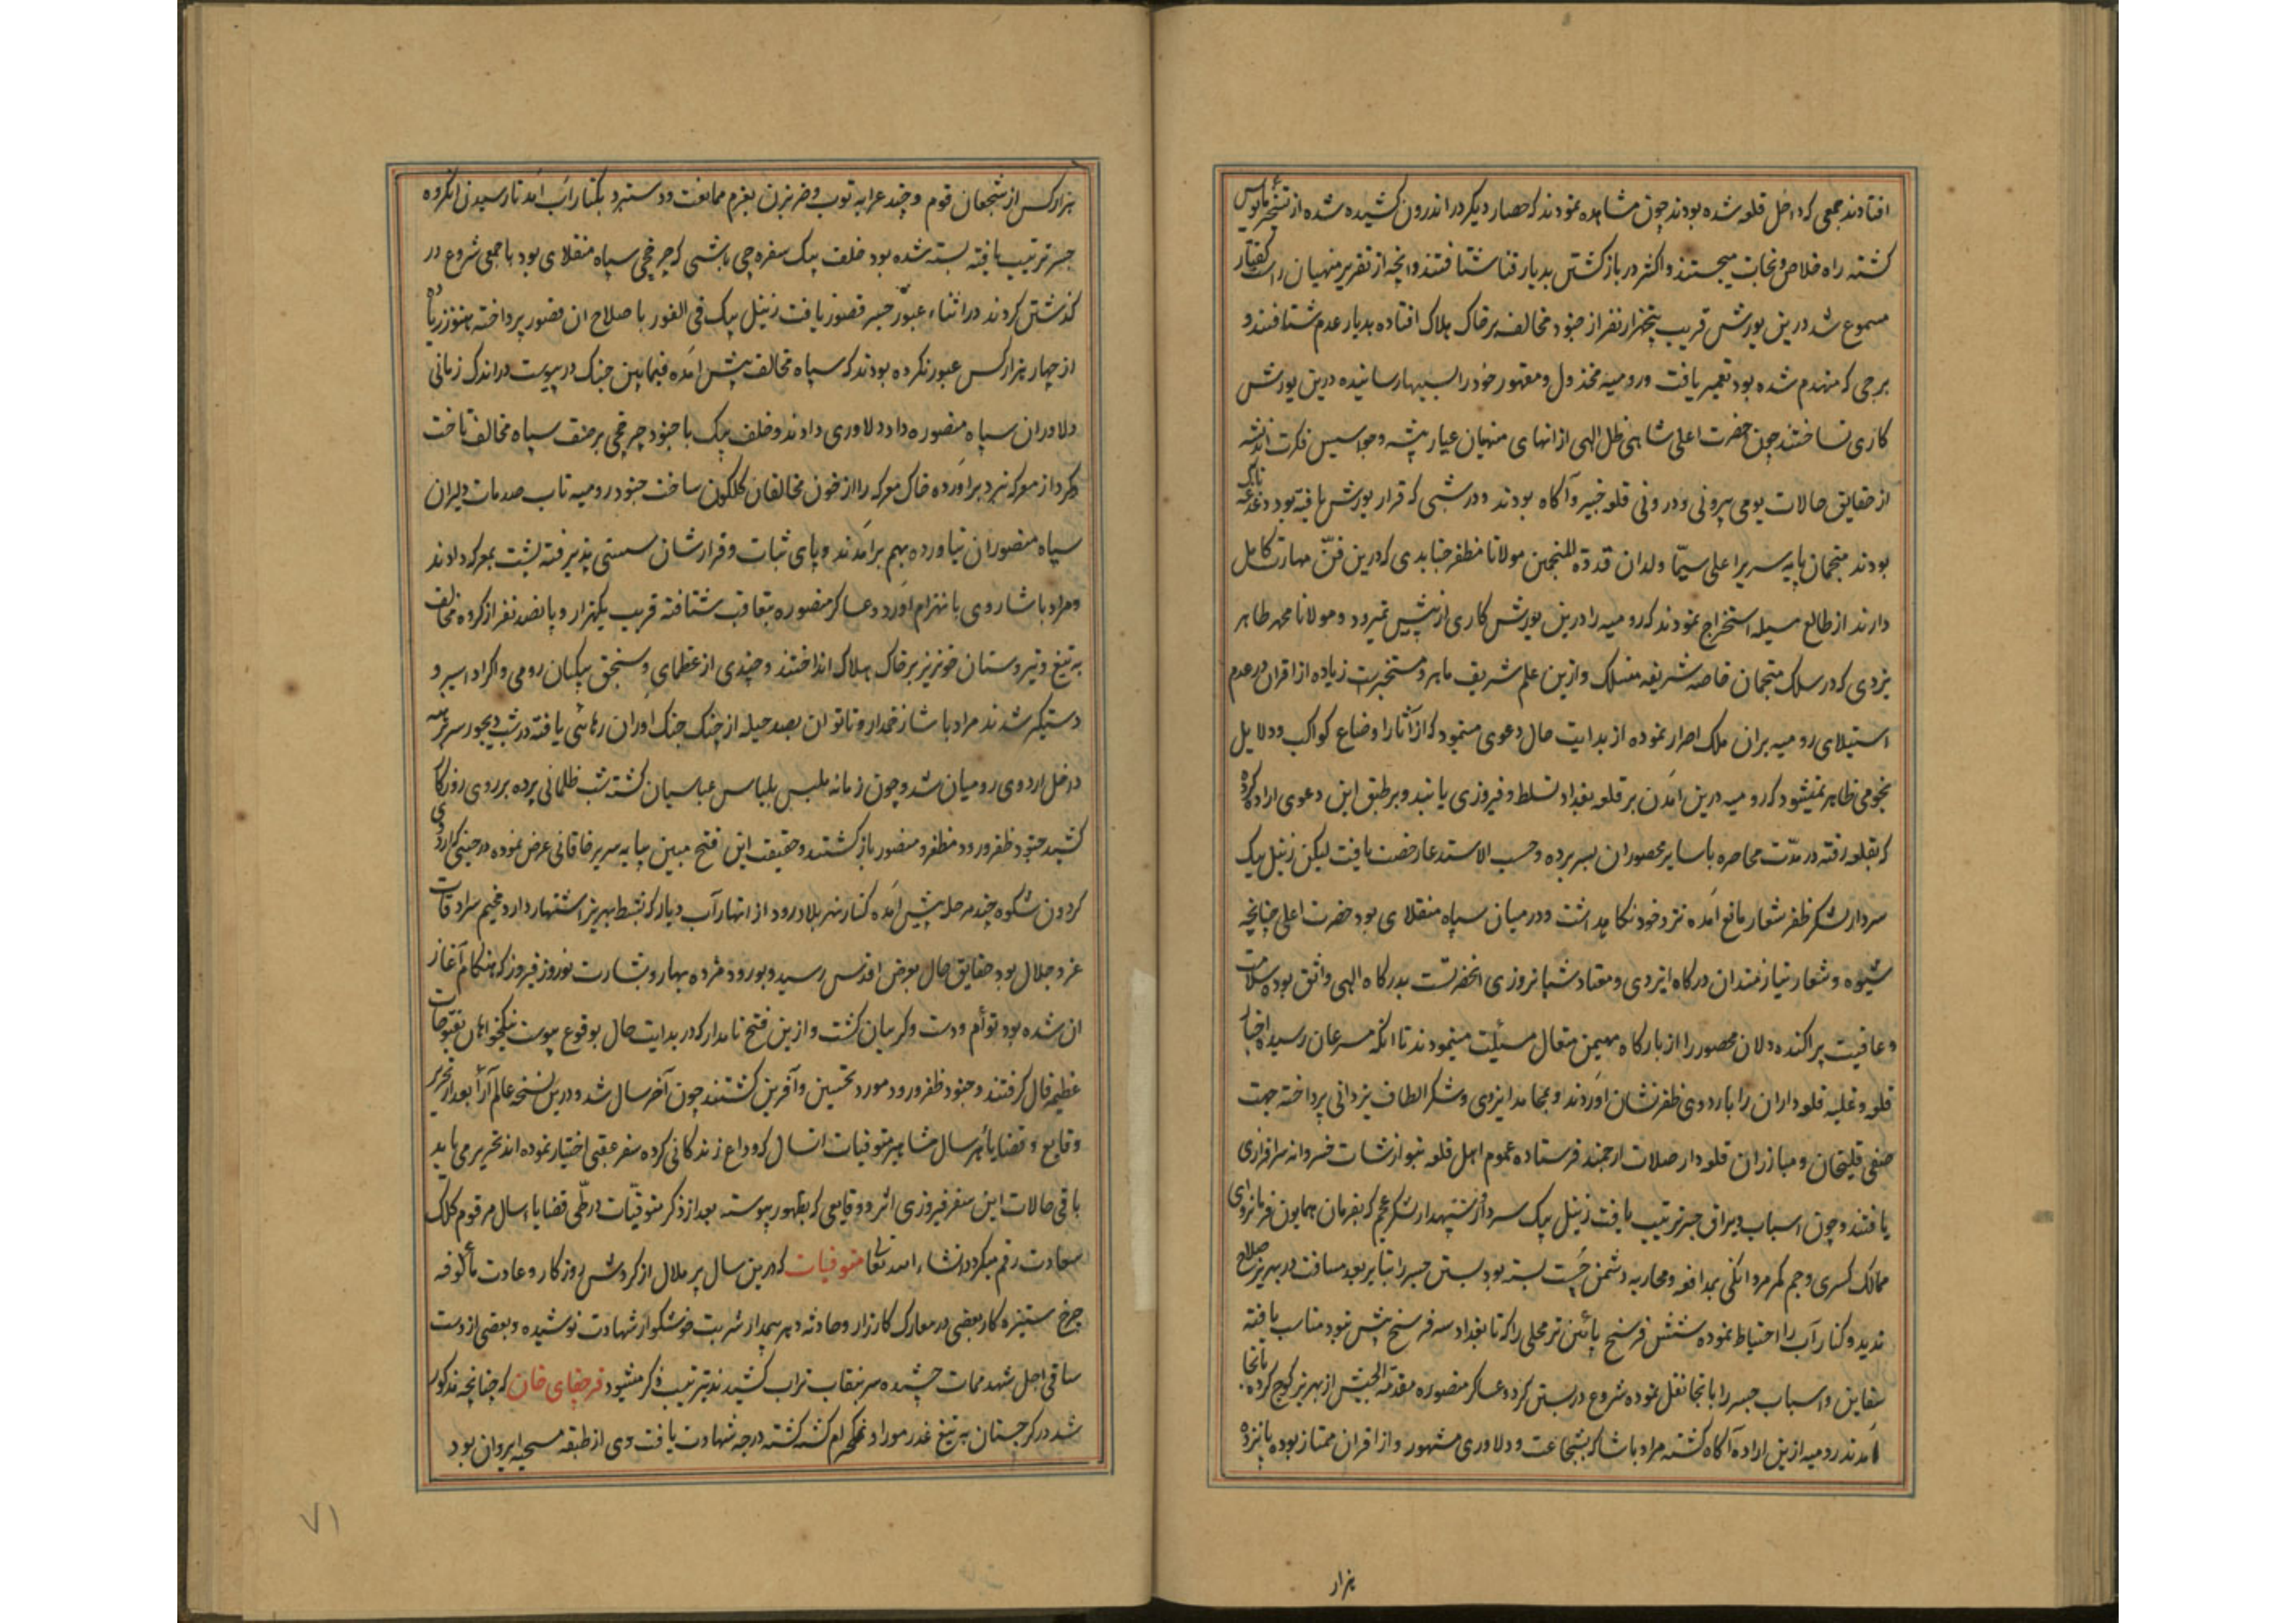 افتادند جمعی که داخل قلعه شده بودند چون مشاهده نمودند که حصار دیکر در اندرون کشیده شده از تسخیر مأیوس
کشته راه خلاص و نجات میجستند و اکثر در باز کشتن بدیار فنا شتافتند و آنچه از تقریر منهیان راست کفتار
مسموع شد درین یورش قریب پنجهزار نفر از جنود مخالف بر خاک هلاک افتاده بدیار عدم شتافتند و
برجی که منهدم شده بود تعمیر یافت و رومیه مخذول و مقهور خود را بسیبها رسانیده درین یورش
کاری نساختند چون حضرت اعلی شاهی ظل الهی از انهای منهیان عیار پیشه و جواسیس فکرت اندیشه
از حقایق حالات یومی بیرونی و درونی قلعه خبیر و آکاه بودند و در شبی که قرار یورش یافته بود دغدغه ناک
بودند منجمان پایه سریر اعلی سیّما ولدان قدوة المنجمین مولانا مظفر جنابدی که درین فنّ مهارت کامل
دارند از طالع مسیله استخراج نمودند که رومیه را درین یورش کاری از پیش نمیرود و مولانا محمد طاهر
یزدی که در سلک منجمان خاصه شریفه منسلک و ازین علم شریف ماهر و مستخبرست زیاده از اقران در عدم
استیلای رومیه بران ملک اصرار نموده از بدایت حال دعوی مینمود که از آثار اوضاع کواکب و دلایل
نجومی ظاهر نمیشود که رومیه درین آمدن بر قلعه بغداد تسلط و فیروزی یابند و بر طبق این دعوی اراده کرده
که بقلعه رفته در مدّت محاصره با سایر محصوران بسر برده و حسب الاستدعا رخصت یافت لیکن زینل بیک
سردار لشکر ظفر شعار مانع آمده نزد خود نکاهداشت و در میان سپاه منقلای بود حضرت اعلی چنانچه
شیوه و شعار نیازمندان درکاه ایزدی و معتاد شبانروزی انحضرتست بدرکاه الهی واثق بوده سلامت
و عافیت پراکنده دلان محصور را از بارکاه مهیمن متعال مسئلت مینمودند تا انکه مسرعان رسیده اخبار
قلعه و غلبه قلعه داران را باردوی ظفر نشان آوردند و بمحامد ایزدی و شکر الطاف یزدانی پرداخته جهت
صفی قلیخان و مبارزان قلعه دار صلات ارجمند فرستاده عموم اهل قلعه بنوازشات خسروانه سرافرازی
یافتند و چون اسباب و یراق جسر ترتیب یافت زینل بیک سردار و سپهدار لشکر عجم که بفرمان همایون فرمانروای
ممالک کسری و جم کمر مردانکی بمدافعه و محاربه دشمن چست بسته بود بستن جسر را بنابر بعد مسافت در بهریز صلاح
ندید و کنار آب را احتیاط نموده شش فرسخ پائین تر محلی را که تا بغداد سه فرسخ بیش نبود مناسب یافته
سفاین و اسباب جسر را بانجا نقل نموده شروع در بستن کرد و عساکر منصوره مقدمة الجیش از بهریز کوچ کرده بانجا
آمدند رومیه ازین اراده آکاه کشته مراد پاشا که بشجاعت و دلاوری مشهور و از اقران ممتاز بود با پانزده
هزار
هزار کس از شجعان قوم و چند عرابه توب و ضربزن بعزم ممانعت و دستبرد بکنار آب آمد تا رسیدن انکروه
جسر ترتیب یافته بسته شده بود خلف بیک سفره چی باشی که چرخچی سپاه منقلای بود با جمعی شروع در
کذشتن کردند در اثناء عبور جسر قصور یافت زینل بیک فی الفور باصلاح ان قصور پرداخته هنوز زیاده
از چهار هزار کس عبور نکرده بودند که سپاه مخالف پیش آمده فیمابین جنک در پیوست در اندک زمانی
دلاوران سپاه منصوره داد دلاوری دادند و خلف بیک با جنود چرخچی بر صف سپاه مخالف تاخت
و کرد از معرکه نبرد برآورده خاک معرکه را از خون مخالفان کلکون ساخت جنود رومیه تاب صدمات دلیران
سپاه منصور ان نیاورده بهم برآمدند و پای ثبات و قرارشان سستی پذیرفته پشت بمعرکه دادند
و مراد پاشا روی بانهزام آورد و عساکر منصوره بتعاقب شتافته قریب یکهزار و پانصد نفر از کروه مخالف
به تیغ و تیر دستان خونریز بر خاک هلاک انداختند و چندی از عظمای و سنجق بیکیان رومی و اکراد اسیر و
دستکیر شدند مراد پاشا زخمدار و ناتوان بصد حیله از چنک جنک اوران رهائی یافته در شب دیجور سراسیمه
داخل اردوی رومیان شد و چون زمانه ملبس بلباس عباسیان کشته شب ظلمانی پرده بر روی روزکار
کشید جنود ظفر ورود مظفر و منصور باز کشتند و حقیقت این فتح مبین بپایه سریر خاقانی عرض نموده در حینی که اردوی
کردون شکوه چند مرحله پیش آمده کنار نهر بلادرود از انهار آب دیاله که بشط بهریز اشتهار دارد مخیم سرادقات
عز و جلال بود حقایق حال بعرض اقدس رسید و بورود مژده بهار و بشارت نوروز فیروز که هنکام آغاز
ان شده بود توأم و دست و کریبان کشت و ازین فتح نامدار که در بدایت حال بوقوع پیوست نیکخواهان بفتوحات
عظیمه فال کرفتند و جنود ظفر ورود مورد تحسین و آفرین کشتند چون آخر سال شد و درین نسخه عالم آرا بعد از تحریر
وقایع و قضایاء هر سال مشاهیر متوفیات انسال که وداع زندکانی کرده سفر عقبی اختیار نموده اند تحریر می یابد
باقی حالات این سفر فیروزی اثر و وقایعی که بظهور پیوسته بعد از ذکر متوفیّات در طّی قضایاء سال مرقوم کلک
سعادت رقم میکردد انشاء الله تعالی متوفیات که درین سال پر ملال از کردش روزکار و عادت مألوفه
چرخ ستیزه کار بعضی در معارک کارزار و حادثه دهر بیمدار شربت خوشکوار شهادت نوشیده و بعضی از دست
ساقی اجل شهد ممات چشیده سر بنقاب تراب کشیدند بترتیب ذکر میشود قرچقای خان که چنانچه مذکور
شد در کرجستان به تیغ غدر موراو نمکحرام کشته کشته درجه شهادت یافت وی از طبقه مسیحیه ایروان بود
۷۱